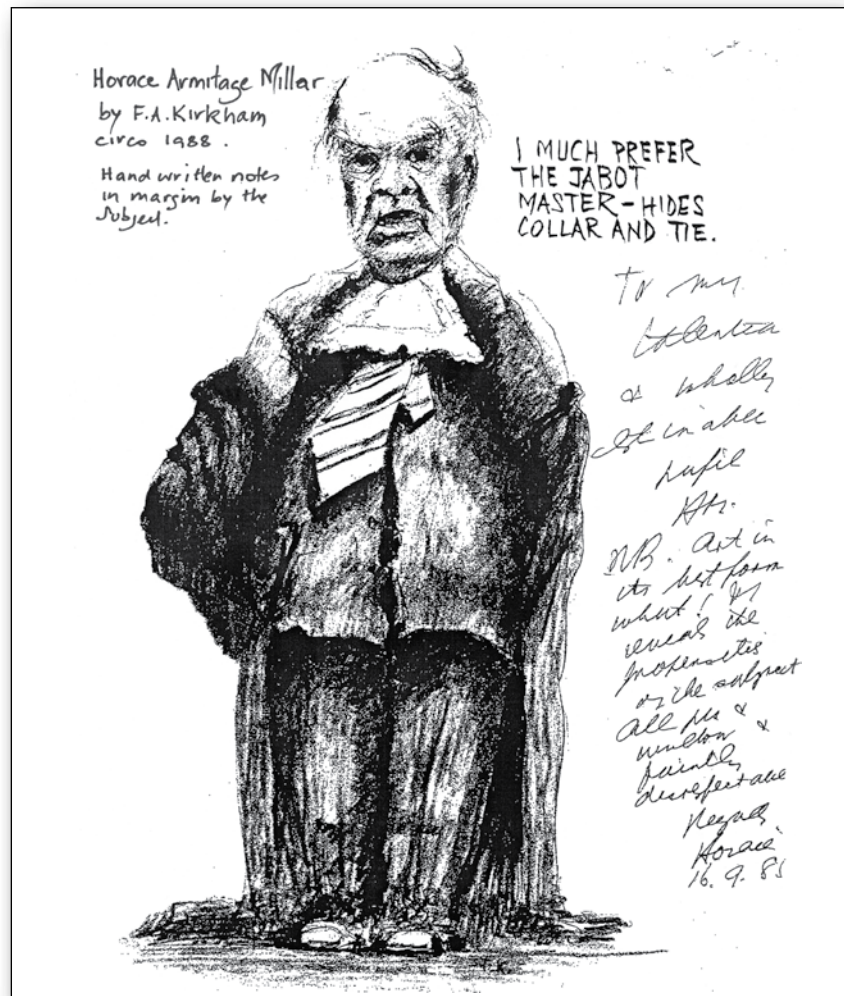 Horace Armitage Millar
by F.A. Kirkham
circo 1988.
Hand written notes
in margin by the
Subject.
I MUCH PREFER
THE JABOT
MASTER - HIDES
COLLAR AND TIE.
To my
& wholly
pupil
NB. Art in
its best form
what!
reveals the
propensities
of the subject
All
&
disrespectable
Regards
Horace
16. 9. 85
F.K.